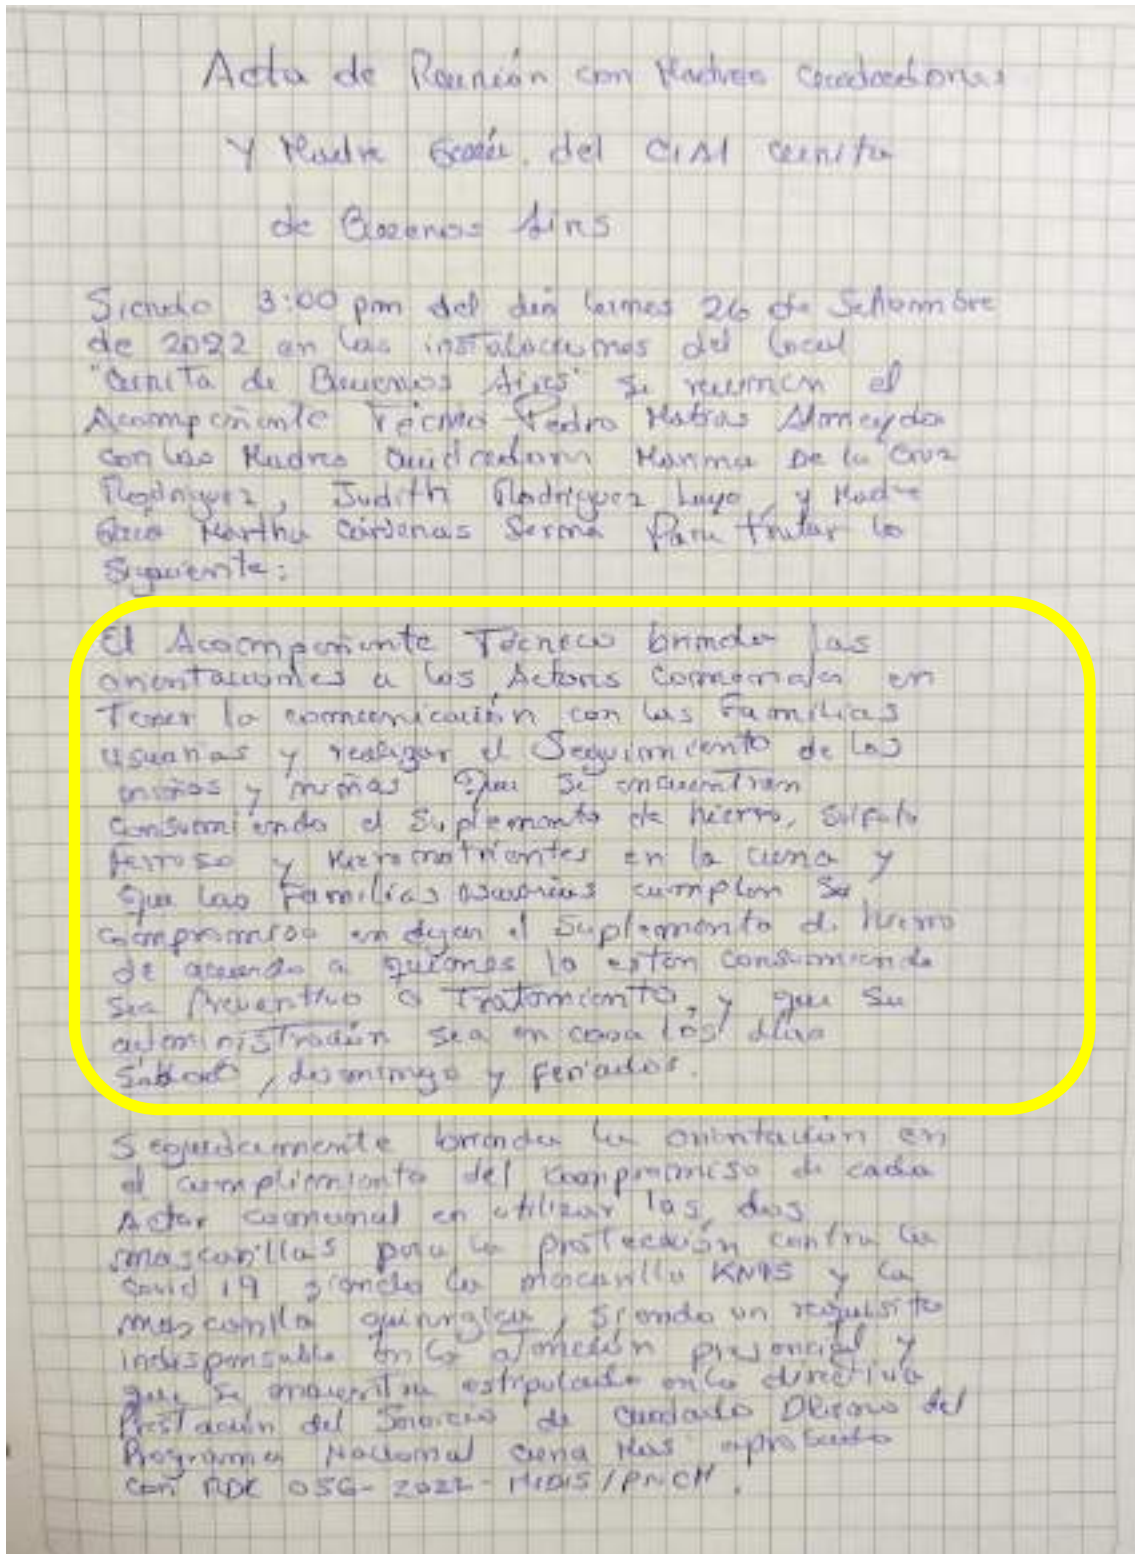 Acta de Reunión con Madres Cuidadoras
Y Madre Guía del CIAI Cunita
de Buenos Aires
Siendo 3:00 pm del día lunes 26 de Setiembre
de 2022 en las instalaciones del local
"Cunita de Buenos Aires" se reunen el
Acompañante Técnico Pedro Matias Almeyda
con las Madres Cuidadora Marina De la Cruz
Rodriguez, Judith Rodriguez Luyo, y Madre
Guía Martha Cárdenas Serna Para tratar lo
Siguiente:
El Acompañante Técnico brinda las
orientaciones a los Actores Comunales en
Tener la comunicación con las Familias
usuarias y realizar el Seguimiento de los
niños y niñas Que Se encuentran
Consumiendo el Suplemento de hierro, Sulfato
Ferroso y Micronutrientes en la cuna y
Que las Familias usuarias cumplan Su
compromiso en dejar el Suplemento de hierro
de acuerdo a quienes lo estan Consumiendo
Sea Preventivo o Tratamiento, y que Su
administración sea en casa los dias
Sábado, domingo y feriados.
Seguidamente brinda la orientación en
el cumplimiento del Compromiso de cada
Actor comunal en utilizar las dos
mascarillas para la protección contra la
Covid 19 siendo la mascarilla KN95 y la
mascarilla quirurgica, Siendo un requisito
indispensable en la atención presencial y
que Se encuentra estipulado en la directiva
Prestación del Servicio de Cuidado Diurno del
Programa Nacional Cuna Mas aprobado
Con RDE 056-2022-MIDIS/PNCM.